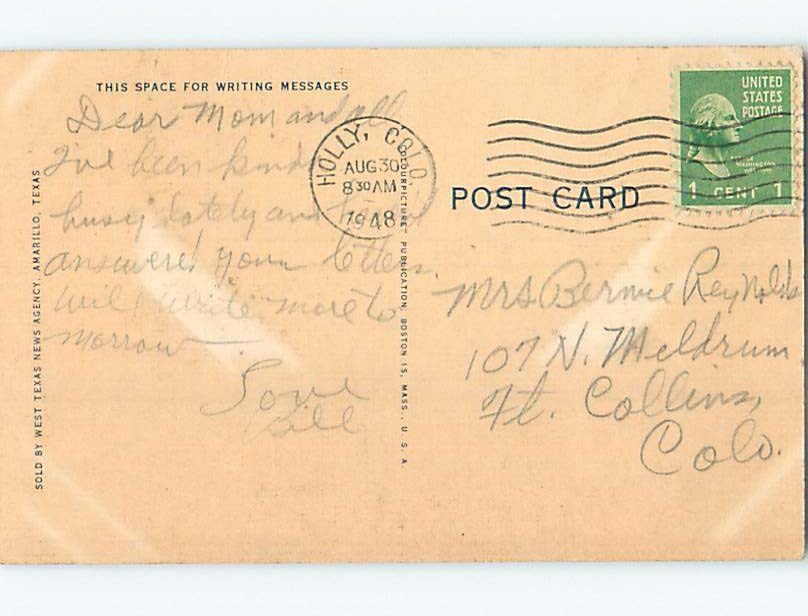 THIS SPACE FOR WRITING MESSAGES
Dear Mom and all
I've been kinda
busy lately and
answered your letters.
Will write more to
morrow —
Love
Bill
SOLD BY WEST TEXAS NEWS AGENCY, AMARILLO, TEXAS
COLOURPICTURE PUBLICATION, BOSTON 15, MASS., U. S. A
HOLLY, COLO.
AUG 30
8 30 AM
1948
UNITED
STATES
POSTAGE
WASHINGTON
1 CENT 1
POST CARD
Mrs Bernie Reynolds
107 N. Meldrum
Ft. Collins,
Colo.